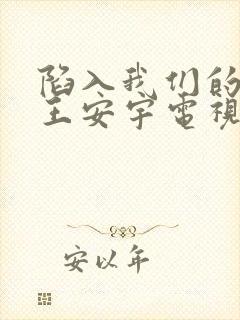 陷入我们的
王安宇電視
安以年